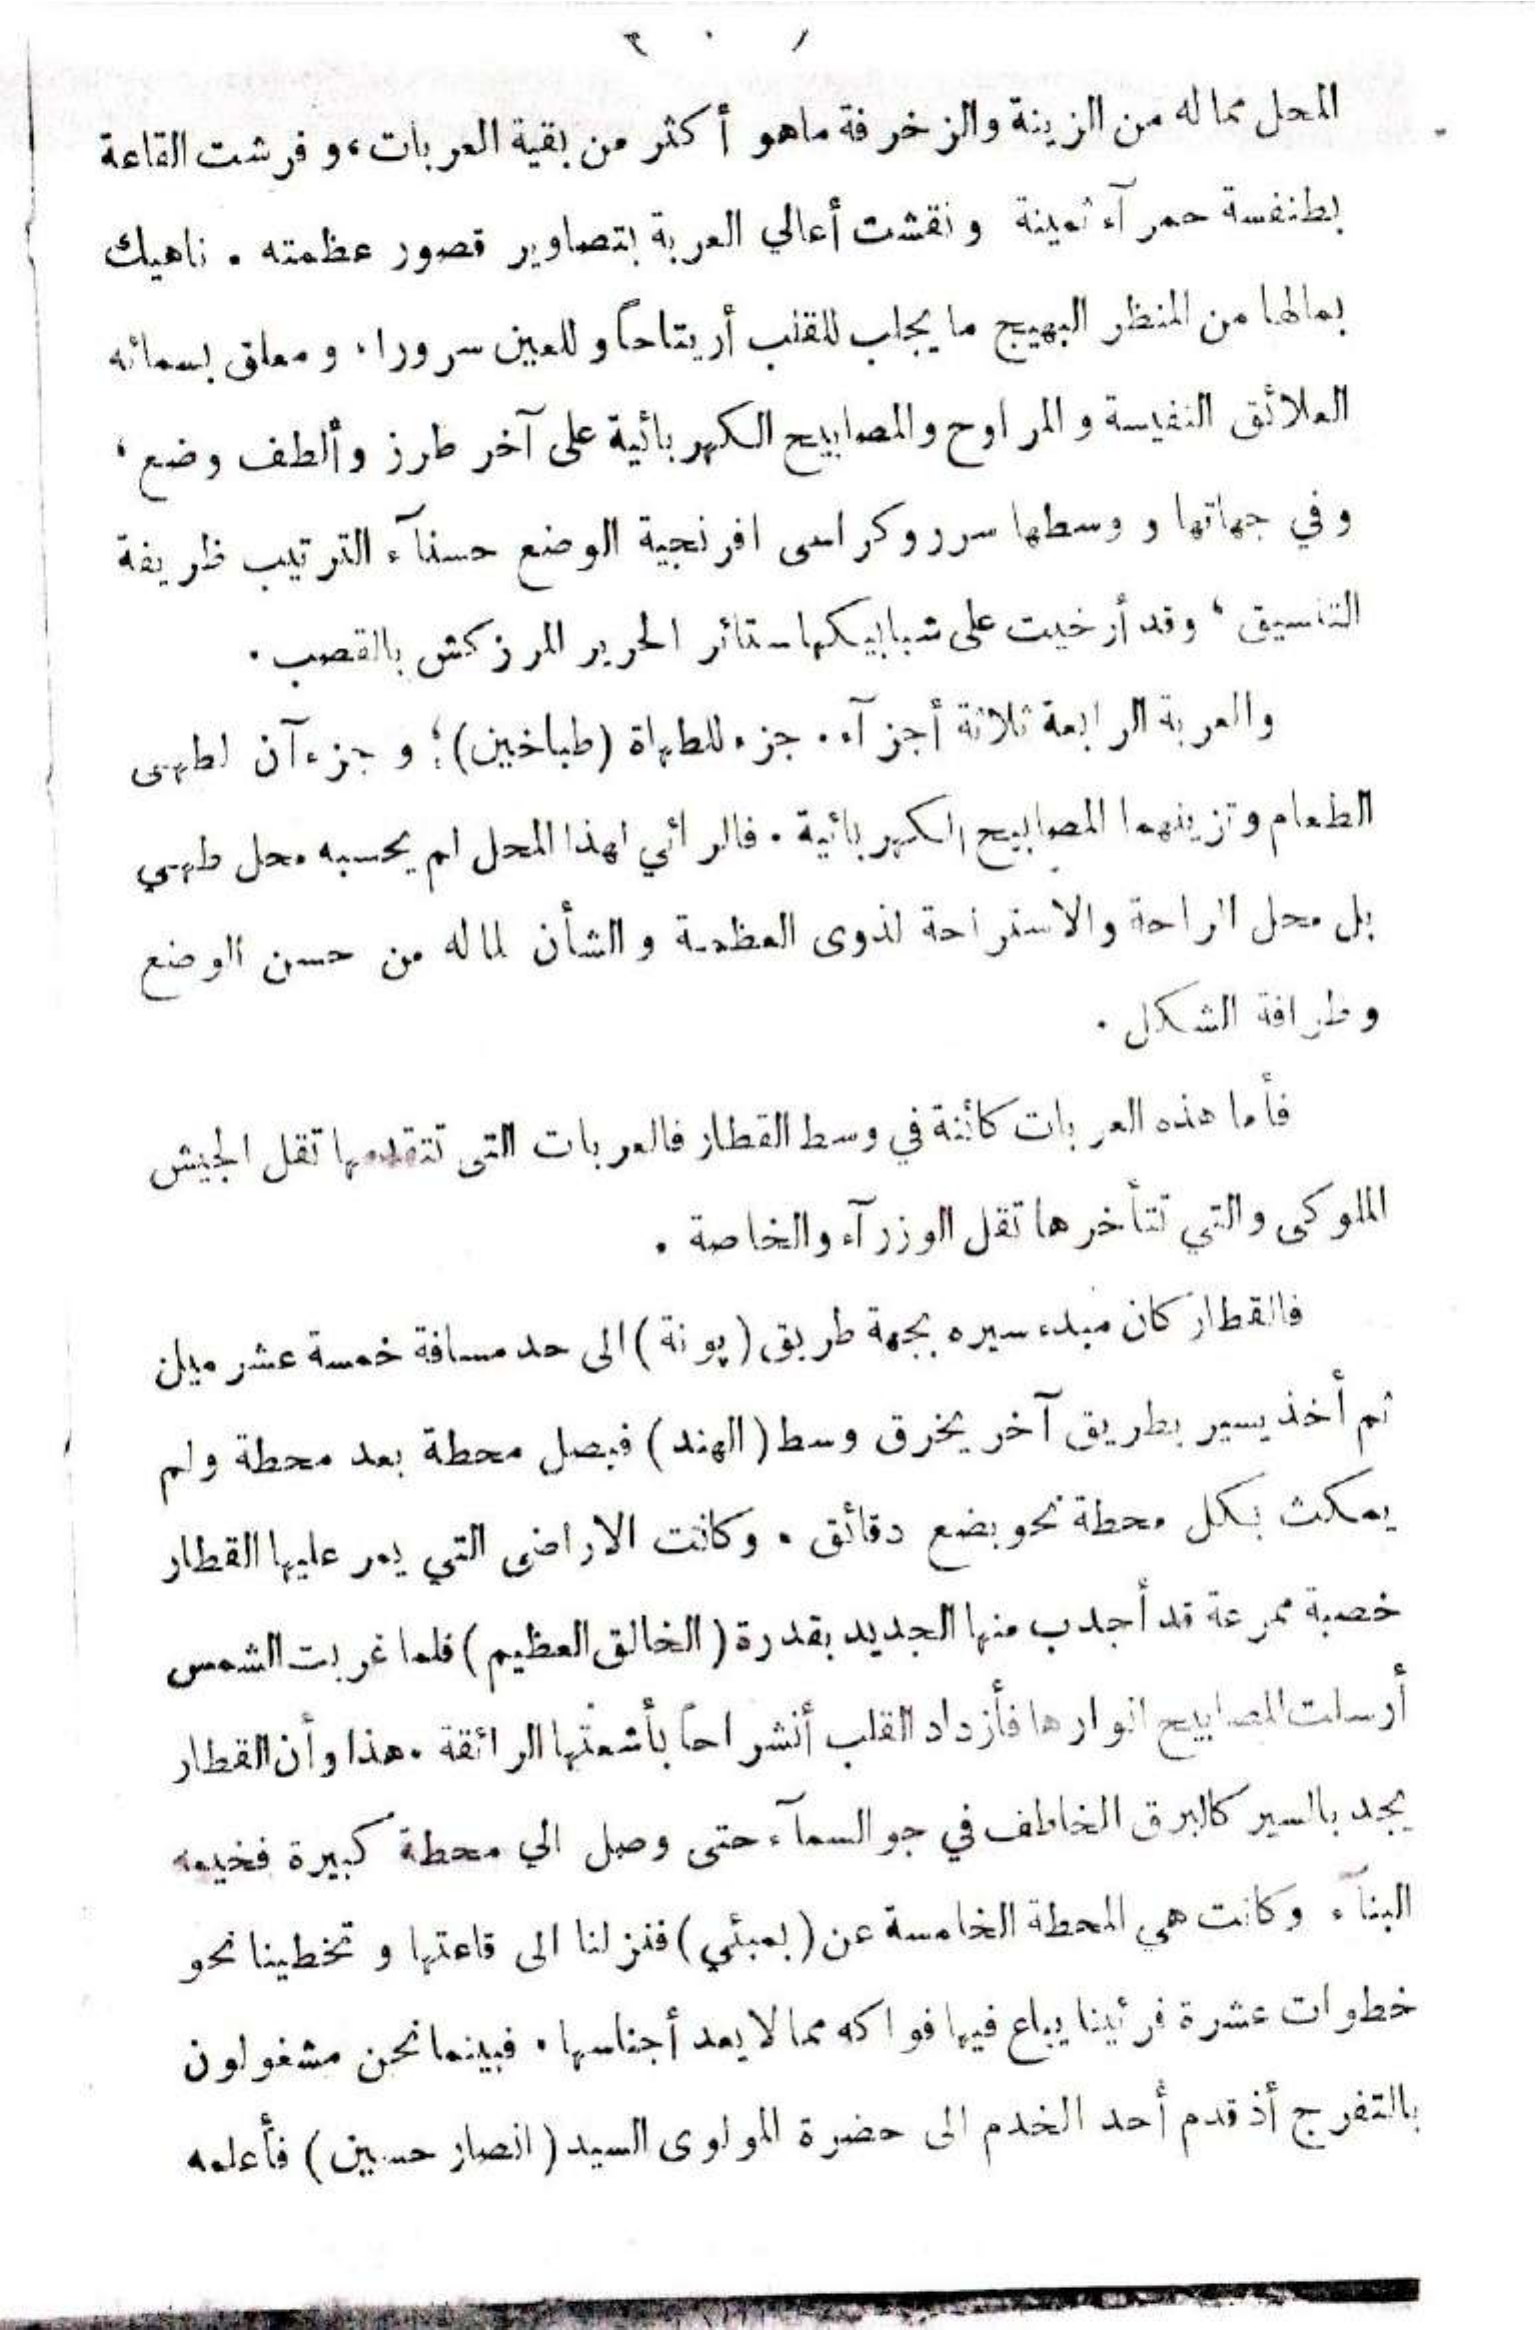 المحل مما له من الزينة والزخرفة ماهو أكثر من بقية العربات، وفرشت القاعة
بطنفسة حمرآء ثمينة ونقشت أعالي العربة بتصاوير قصور عظمته . ناهيك
بمالها من المنظر البهيج ما يجلب للقلب أريتاحاً وللعين سرورا . ومعلق بسمائه
العلائق النفيسة والمراوح والمصابيح الكهربائية على آخر طرز وألطف وضع ،
وفي جهاتها و وسطها سرر وكراسى افرنجية الوضع حسنآء الترتيب ظريفة
التنسيق ، وقد أرخيت على شبابيكها ستائر الحرير المرزكش بالقصب .
والعربة الرابعة ثلاثة أجزآء . جزء للطهاة (طباخين)؛ وجزءآن لطهى
الطعام وتزينهما المصابيح الكهربائية . فالرائي لهذا المحل لم يحسبه محل طهي
بل محل الراحة والاستراحة لذوى العظمة والشأن لماله من حسن الوضع
وظرافة الشكل .
فأما هذه العربات كائنة في وسط القطار فالعربات التى تتقدمها تقل الجيش
الملوكى والتي تتأخرها تقل الوزرآء والخاصة .
فالقطار كان مبدء سيره بجهة طريق (پونة) الى حد مسافة خمسة عشر ميلن
ثم أخذ يسير بطريق آخر يخرق وسط (الهند) فيصل محطة بعد محطة ولم
يمكث بكل محطة نحو بضع دقائق . وكانت الاراضى التي يمر عليها القطار
خصبة ممرعة قد أجدب منها الجديد بقدرة (الخالق العظيم) فلما غربت الشمس
أرسلت المصابيح انوارها فأزداد القلب أنشراحاً بأشعتها الرائقة . هذا وأن القطار
يجد بالسير كالبرق الخاطف في جو السمآء حتى وصل الي محطة كبيرة فخيمه
البنآء وكانت هي المحطة الخامسة عن (بمبئي) فنزلنا الى قاعتها و تخطينا نحو
خطوات عشرة فرئينا يباع فيها فواكه مما لا يعد أجناسها . فبينما نحن مشغولون
بالتفرج أذ قدم أحد الخدم الى حضرة المولوى السيد (انصار حسين) فأعلمه